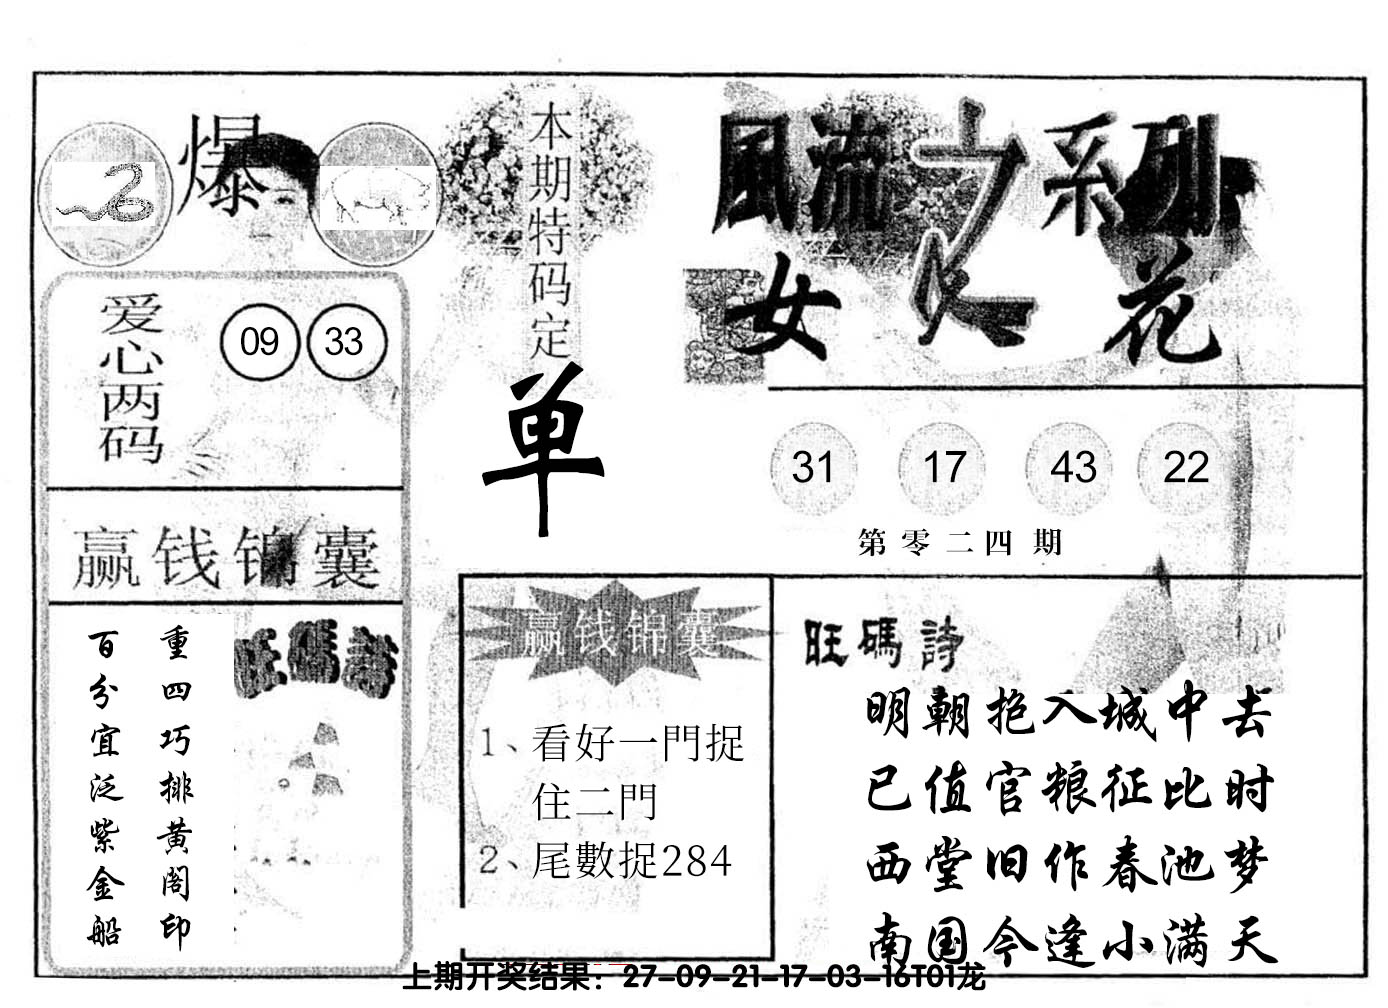 爆
本期特码定
单
風流之系列
女人花
爱心两码
09 33
31 17 43 22
第零二四期
赢钱锦囊
重四巧排黄阁印
百分宜泛紫金船
旺碼詩
赢钱锦囊
1、看好一門捉
住二門
2、尾數捉284
旺碼詩
明朝抱入城中去
已值官粮征比时
西堂旧作春池梦
南国今逢小满天
上期开奖结果：27-09-21-17-03-16T01龙